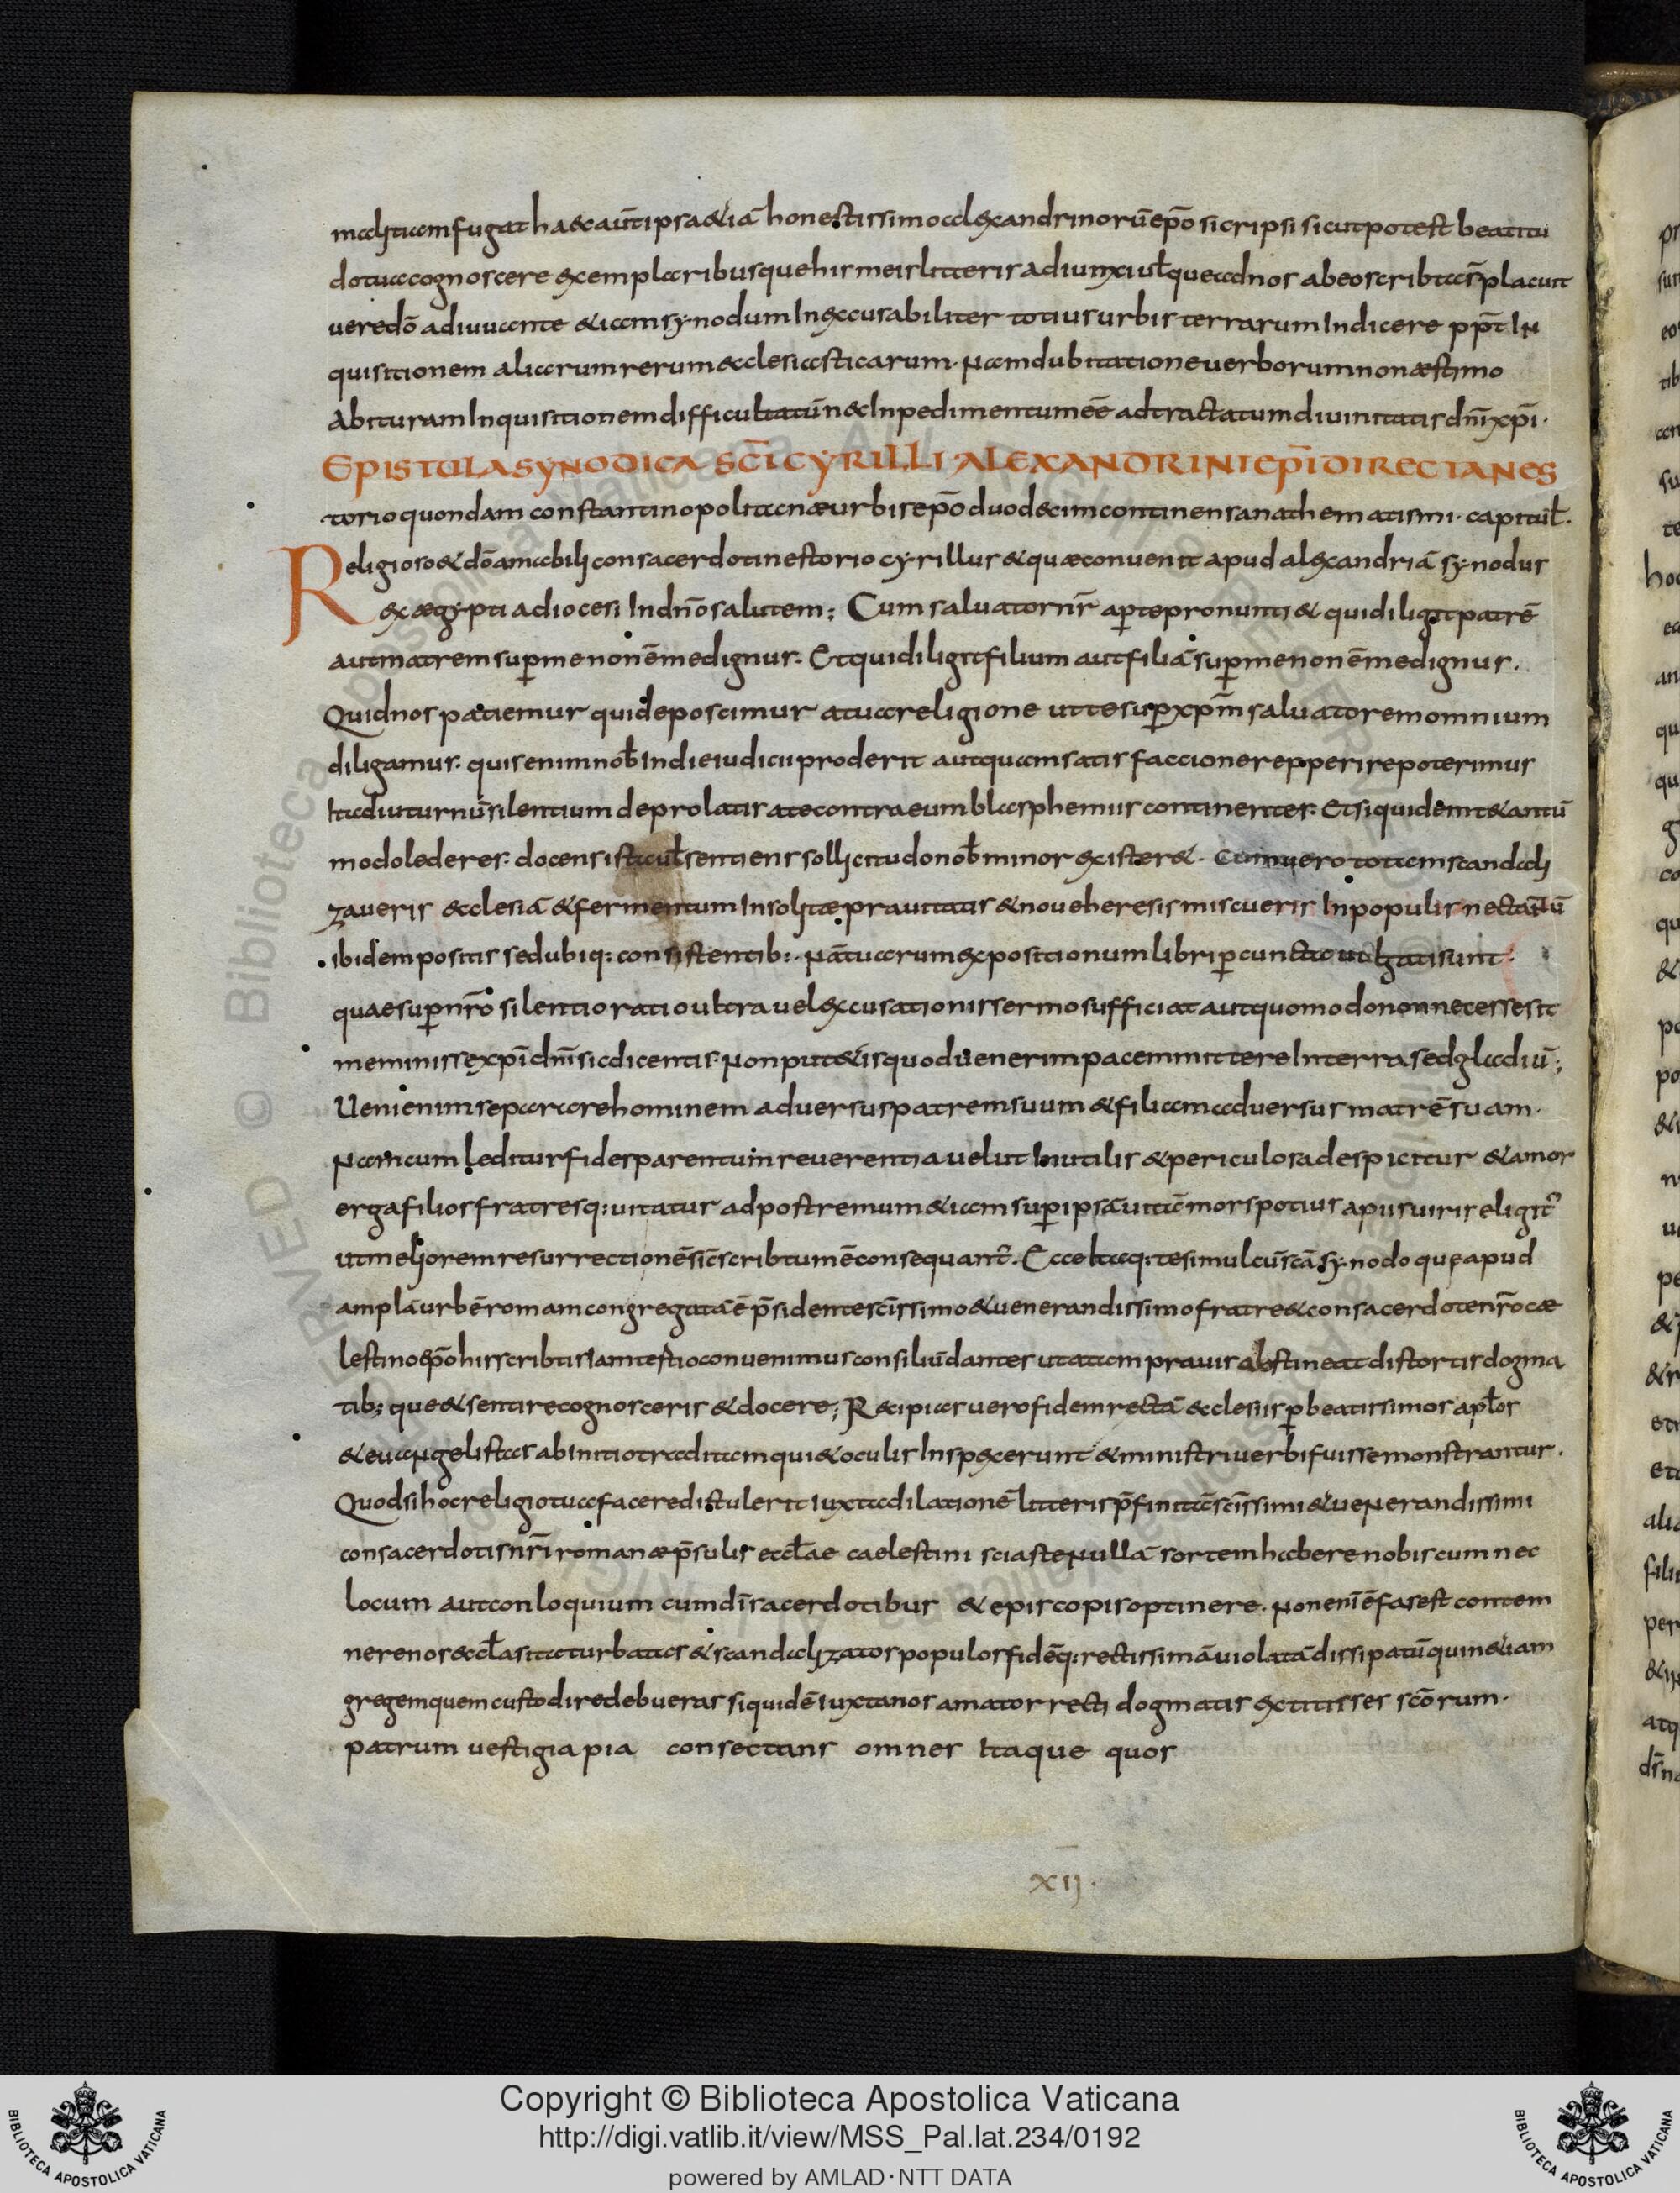 malitiam fugat haec autipsa &iā honestissimo alexandrinorū epō sicripsi sicut potest beatitu
do tua cognoscere exemplaribus que his meis litteris adiunxi vel que ad nos ab eo scribta s̄ placuit
vero dō adiuvante &iam synodum inexcusabiliter totius urbis terrarum indicere ppt̄ in
quisitionem aliarum rerum ecclesiasticarum. Nam dubitatione verborum non aestimo
abituram inquisitionem difficultatū nec inpedimentum eē ad tractatum divinitatis dn̄i xp̄i.
EPISTULA SYNODICA SC̄I CYRILLI ALEXANDRINI EP̄I DIRECTA NES
torio quondam constantinopolitanae urbis epō duodecim continens anathematismi. capitul̄.
Religioso & dō amabili consacerdoti nestorio cyrillus & quae convenit apud alexandriā synodus
ex aegypti adiocesi in dn̄o salutem; Cum salvator nr̄ aperte pronunti& qui diligit patrē
aut matrem super me non ē me dignus. Et qui diligit filium aut filiā super me non ē me dignus.
Quid nos patiemur qui deposcimur a tua religione ut te super xp̄m salvatorem omnium
diligamus. quis enim nob̄ in die iudicii proderit aut quam satisfaccione repperire poterimus
ita diuturnū silentium de prolatis a te contra eum blasphemiis continentes. Et si quidem te&antū
modo lederes. docens ista vel sentiens sollicitudo nob̄ minor exister&. Cum vero totam scandali
zaveris ecclesiā & fermentum insolitae pravitatis & nove heresis miscueris in populis nec tantū
ibidem positis sed ubiq: consistentib: Nā tuarum expositionum libri per cuncta vulgati sunt.
quae super nr̄o silentio ratio ultra vel excusationis sermo sufficiat aut quomodo non necesse sit
meminisse xp̄i dn̄i sic dicentis. Non put&is quod venerim pacem mittere in terra sed gladiū;
Veni enim separare hominem adversus patrem suum & filiam adversus matrē suam.
Nam cum leditur fides parentum reverentia velut inutilis & periculosa despicitur & amor
erga filios fratresq: vitatur ad postremum &iam super ipsā vitā mors potius a piis viris eligit̄
ut meliorem resurrectionē sic̄ scribtum ē consequant̄. Ecce itaq: te simul cū sc̄a synodo que apud
amplā urbē romam congregata ē p̄sidente sc̄issimo & venerandissimo fratre & consacerdote nr̄o cae
lestino ep̄o his scribtis iam tertio convenimus consiliū dantes ut a tam pravis abstineat distortis dogma
tib; que & sentire cognosceris & docere; Recipias vero fidem rectā ecclesiis per beatissimos apl̄os
& evangelistas ab initio traditam qui & oculis inspexerunt & ministri verbi fuisse monstrantur.
Quod si hoc religio tua facere distulerit iuxta dilationē litteris p̄finitā sc̄issimi & venerandissimi
consacerdotis nr̄i romanae p̄sulis eccl̄ae caelestini scias te nullā sortem habere nobiscum nec
locum aut conloquium cum dī sacerdotibus & episcopis optinere. Non enī ē fas est contem
nere nos eccl̄as ita turbatas & scandalizatos populos fidēq: rectissimā violatā dissipatū quin &iam
gregem quem custodire debueras siquidē iuxta nos amator recti dogmatis extitisses sc̄orum.
patrum vestigia pia consectans omnes itaque quos
XII.
Copyright © Biblioteca Apostolica Vaticana
http://digi.vatlib.it/view/MSS_Pal.lat.234/0192
powered by AMLAD·NTT DATA